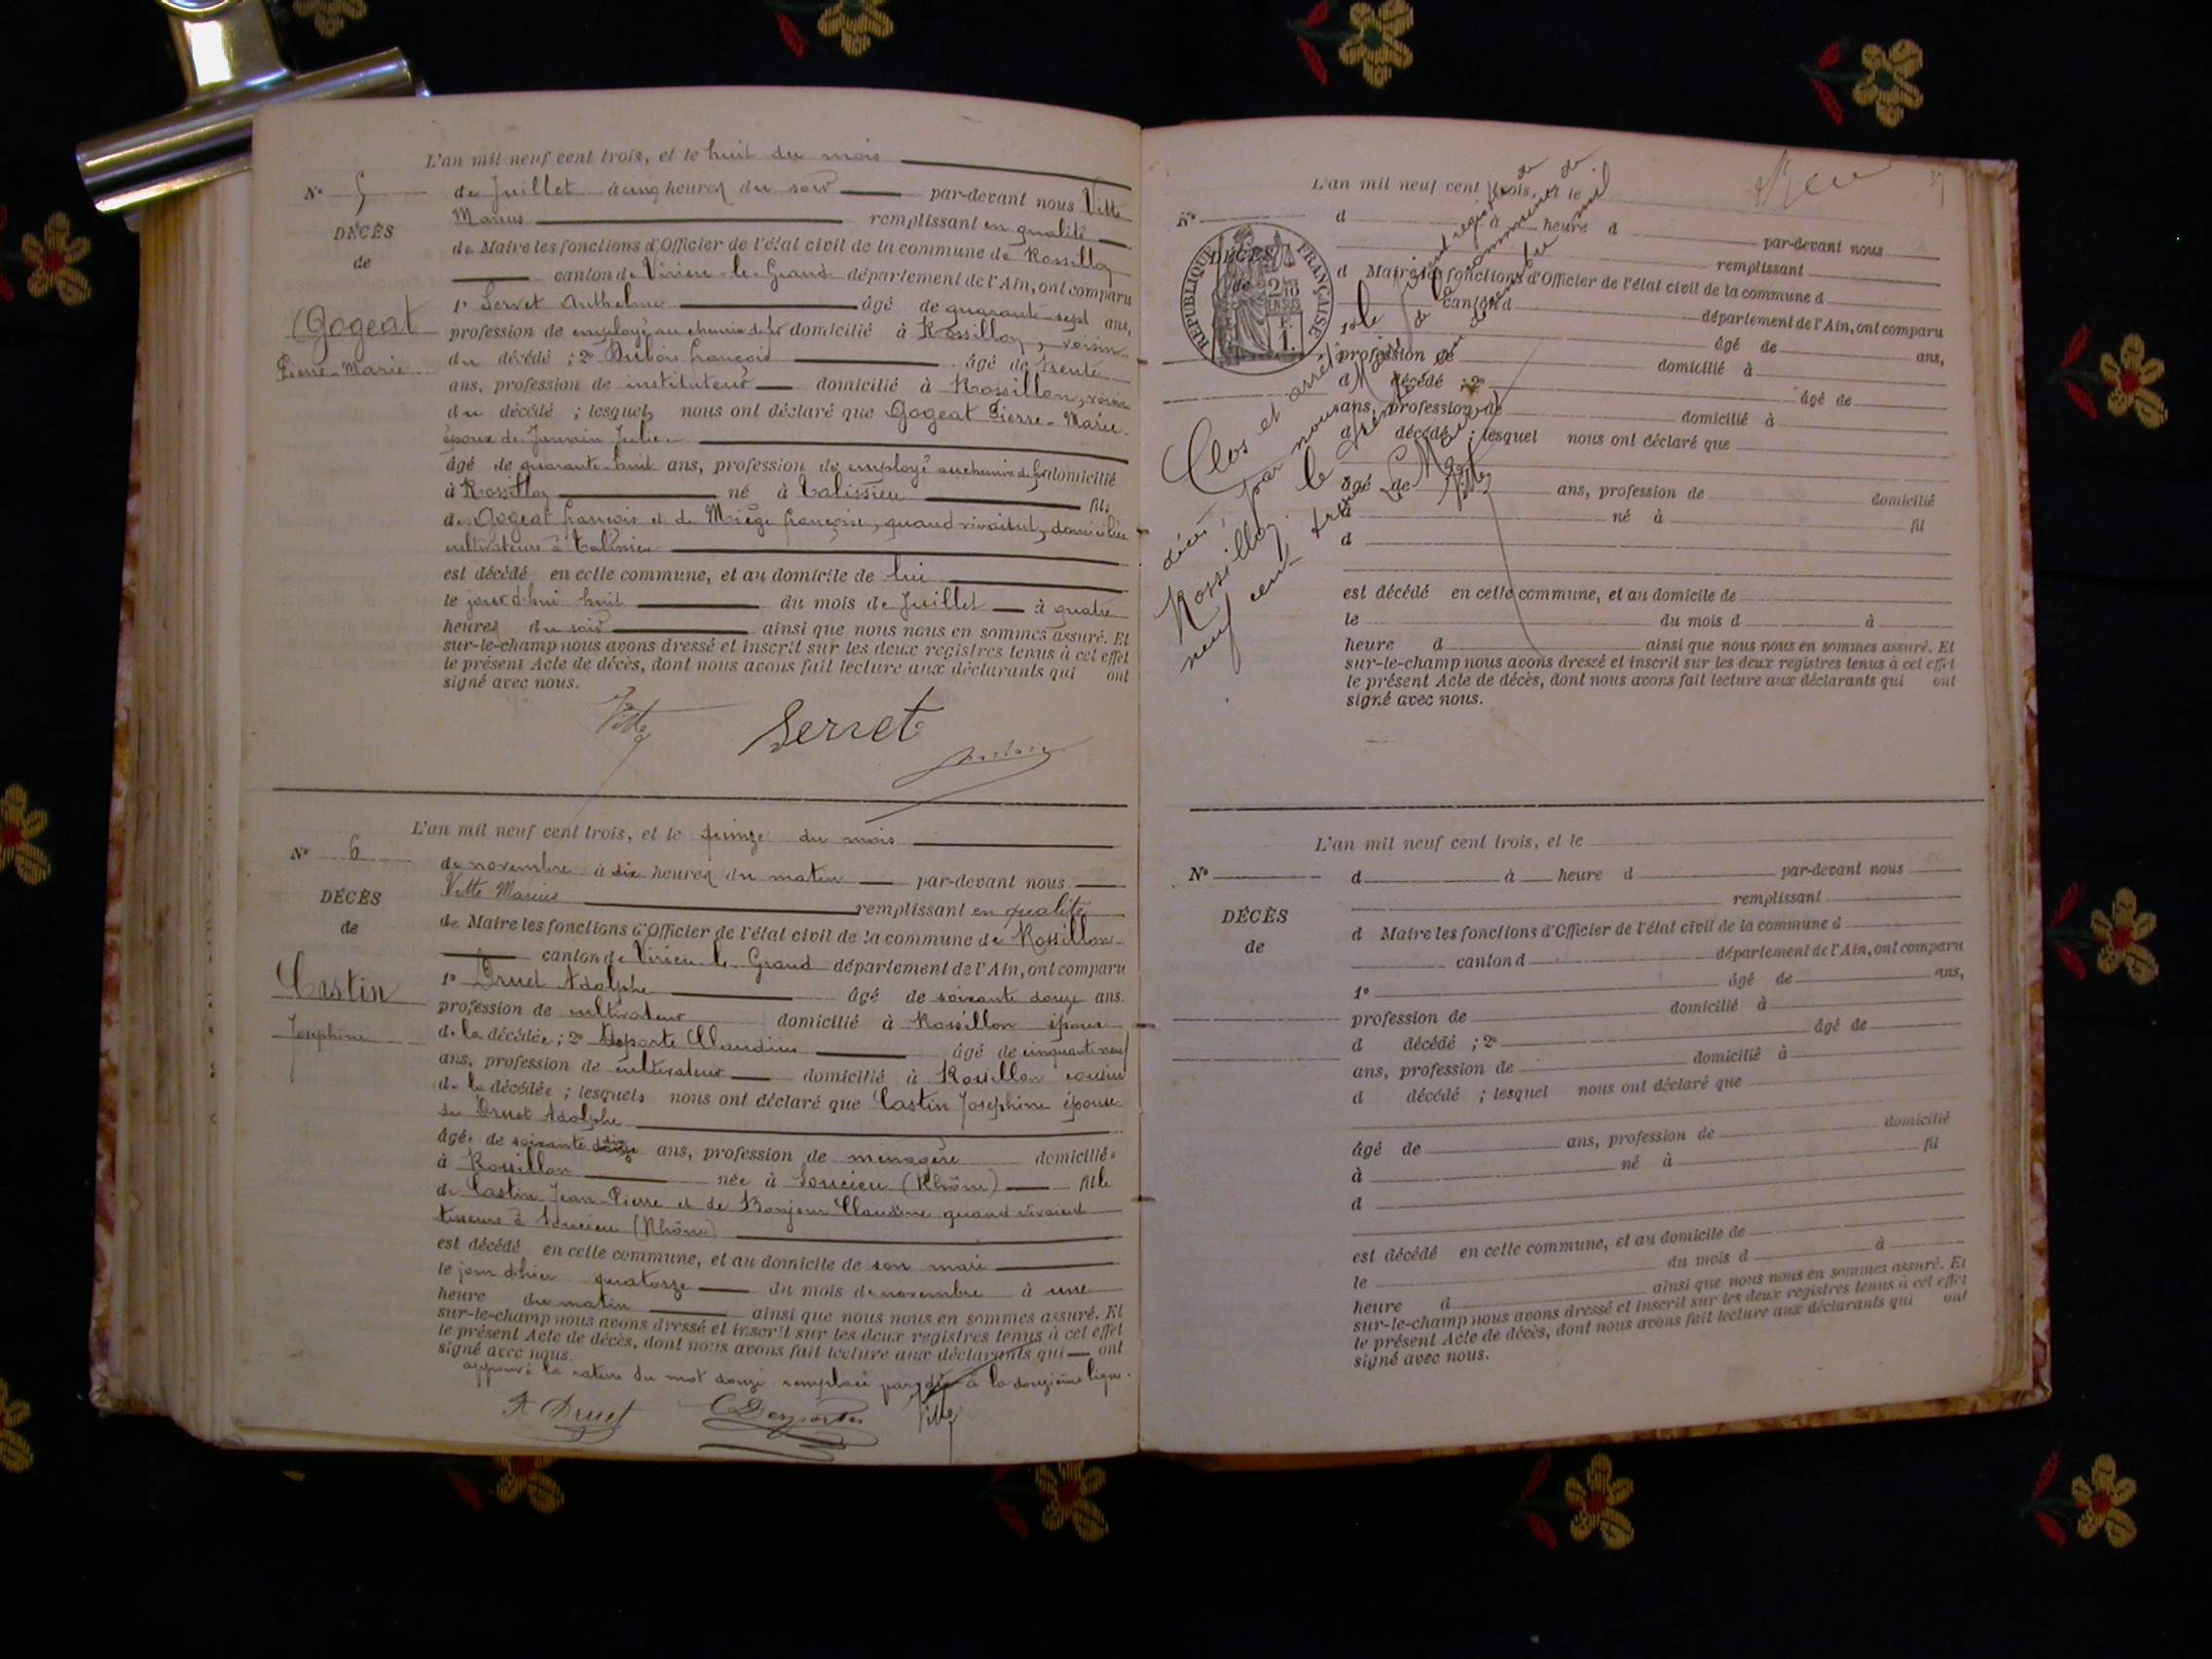 L'an mil neuf cent trois, et le huit du mois
N° 5
de Juillet à cinq heures du soir par-devant nous Vette
Marius remplissant en qualité
DÉCÈS
de Maire les fonctions d'Officier de l'état civil de la commune de Rossillon
de
canton de Virieu-le-Grand département de l'Ain, ont comparu
1° Servet Anthelme âgé de quarante sept ans,
Gogeat
profession de employé au chemin de fer domicilié à Rossillon, voisin
Pierre-Marie
du décédé ; 2° Dubois françois âgé de trente
ans, profession de instituteur domicilié à Rossillon, voisin
du décédé ; lesquels nous ont déclaré que Gogeat Pierre-Marie
époux de Julie
âgé de quarante-huit ans, profession de employé au chemin de fer domicilié
à Rossillon né à Talissieu fils
de Gogeat françois et de Miège françoise, quand vivaient, domiciliés
cultivateurs à Talissieu
est décédé en cette commune, et au domicile de lui
le jourd'hui huit du mois de Juillet à quatre
heures du soir ainsi que nous nous en sommes assuré. Et
sur-le-champ nous avons dressé et inscrit sur les deux registres tenus à cet effet
le présent Acte de décès, dont nous avons fait lecture aux déclarants qui ont
signé avec nous.
Vette Servet Dubois
L'an mil neuf cent trois, et le quinze du mois
N° 6
de novembre à dix heures du matin par-devant nous
Vette Marius remplissant en qualité
DÉCÈS
de Maire les fonctions d'Officier de l'état civil de la commune de Rossillon
de
canton de Virieu-le-Grand département de l'Ain, ont comparu
1° Druet Adolphe âgé de soixante douze ans.
Castin
profession de cultivateur domicilié à Rossillon époux
Joséphine
de la décédée ; 2° Desporte Claudius âgé de cinquante neuf
ans, profession de cultivateur domicilié à Rossillon cousin
de la décédée ; lesquels nous ont déclaré que Castin Joséphine épouse
de Druet Adolphe
âgée de soixante dix ans, profession de ménagère domiciliée
à Rossillon née à Soucieu (Rhône) fille
de Castin Jean-Pierre et de Bonjour Claudine quand vivaient
tisseurs à Soucieu (Rhône)
est décédé en cette commune, et au domicile de son mari
le jour d'hier quatorze du mois de novembre à une
heure du matin ainsi que nous nous en sommes assuré. Et
sur-le-champ nous avons dressé et inscrit sur les deux registres tenus à cet effet
le présent Acte de décès, dont nous avons fait lecture aux déclarants qui ont
signé avec nous.
approuvé la rature du mot douze remplacé par dix à la douzième ligne.
A Druet C Desportes Vette
L'an mil neuf cent trois, et le
N°
d à heure d par-devant nous
remplissant
DÉCÈS
d Maire les fonctions d'Officier de l'état civil de la commune d
de
canton d département de l'Ain, ont comparu
1° âgé de ans,
profession de domicilié à
d décédé ; 2° âgé de
ans, profession de domicilié à
d décédé ; lesquel nous ont déclaré que
âgé de ans, profession de domicilié
à né à fil
d
est décédé en cette commune, et au domicile de
le du mois d à
heure d ainsi que nous nous en sommes assuré. Et
sur-le-champ nous avons dressé et inscrit sur les deux registres tenus à cet effet
le présent Acte de décès, dont nous avons fait lecture aux déclarants qui ont
signé avec nous.
RÉPUBLIQUE FRANÇAISE
Clos et arrêté le présent registre de
décès par nous Maire de la commune de
Rossillon le décembre mil
neuf cent trois
Le Maire
Vette
L'an mil neuf cent trois, et le
N°
d à heure d par-devant nous
remplissant
DÉCÈS
d Maire les fonctions d'Officier de l'état civil de la commune d
de
canton d département de l'Ain, ont comparu
1° âgé de ans,
profession de domicilié à
d décédé ; 2° âgé de
ans, profession de domicilié à
d décédé ; lesquel nous ont déclaré que
âgé de ans, profession de domicilié
à né à fil
d
est décédé en cette commune, et au domicile de
le du mois d à
heure d ainsi que nous nous en sommes assuré. Et
sur-le-champ nous avons dressé et inscrit sur les deux registres tenus à cet effet
le présent Acte de décès, dont nous avons fait lecture aux déclarants qui ont
signé avec nous.